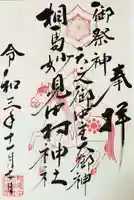 奉拝
御祭神
天之御中主大御神
相馬妙見
中村神社
令和三年十一月